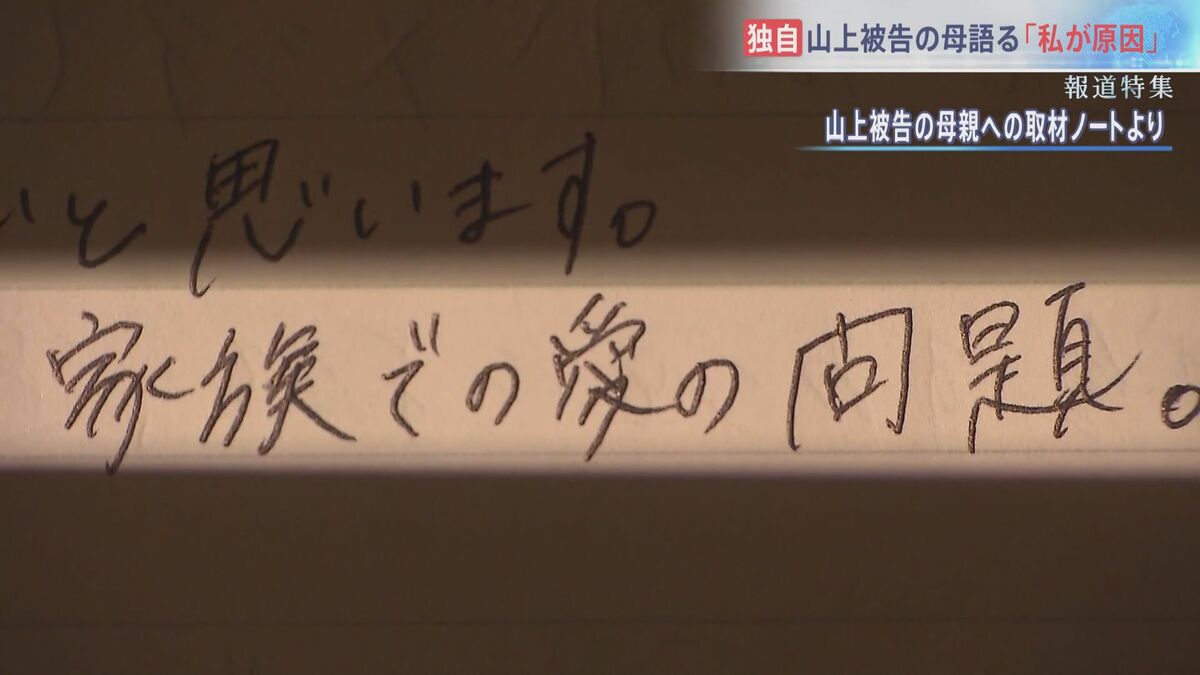 独自 山上被告の母語る「私が原因」
報道特集
山上被告の母親への取材ノートより
いと思います。
家族での愛の問題。